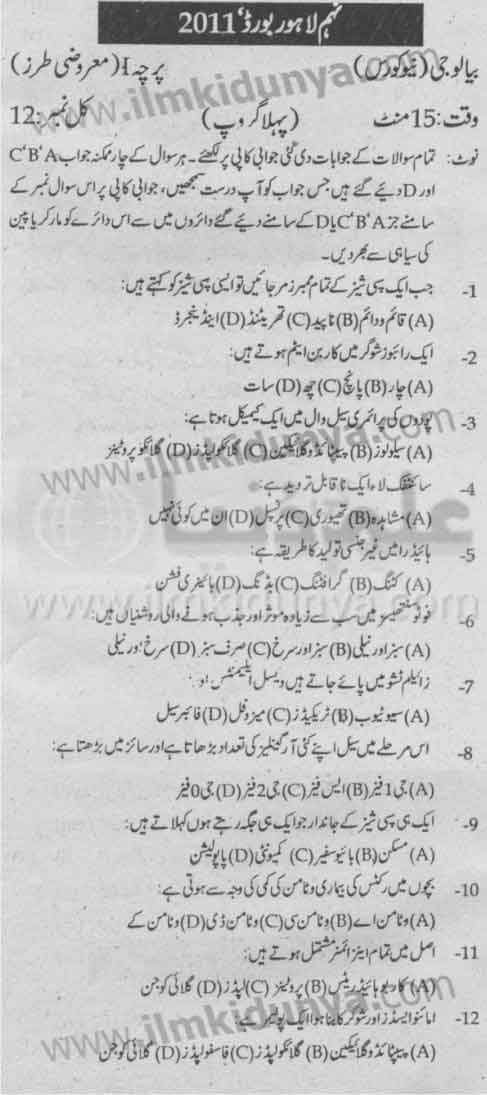 نہم لاہور بورڈ، 2011
بیالوجی (نیو کورس) پرچہ I (معروضی طرز)
وقت: 15 منٹ (پہلا گروپ) کل نمبر: 12
نوٹ: تمام سوالات کے جوابات دی گئی جوابی کاپی پر لکھئے۔ ہر سوال کے چار ممکنہ جواب C'B'A
اور D دیے گئے ہیں جس جواب کو آپ درست سمجھیں، جوابی کاپی پر اس سوال نمبر کے
سامنے جز C'B'A یا D کے سامنے دیئے گئے دائروں میں سے اس دائرے کو مارکر یا پین
کی سیاہی سے بھر دیں۔
1- جب ایک سپی شیز کے تمام ممبرز مر جائیں تو ایسی سپی شیز کو کہتے ہیں:
(A) قائم و دائم (B) ناپید (C) تھریٹنڈ (D) اینڈینجرڈ
2- ایک رائبوز شوگر میں کاربن ایٹم ہوتے ہیں:
(A) چار (B) پانچ (C) چھ (D) سات
3- پودوں کی پرائمری سیل وال میں ایک کیمیکل ہوتا ہے:
(A) سیلولوز (B) پیپٹائڈوگلائیکین (C) گلائکولپڈز (D) گلائکوپروٹینز
4- سائنٹفک لاء ایک ناقابل تردید ہے:
(A) مشاہدہ (B) تھیوری (C) پرنسپل (D) ان میں کوئی نہیں
5- ہائیڈرا میں غیر جنسی تولید کا طریقہ ہے:
(A) کٹنگ (B) گرافٹنگ (C) بڈنگ (D) بائینری فشن
6- فوٹوسنتھیسز میں سب سے زیادہ موثر اور جذب ہونے والی روشنیاں ہیں:
(A) سبز اور نیلی (B) سبز اور سرخ (C) صرف سبز (D) سرخ اور نیلی
7- زائیلم ٹشو میں پائے جاتے ہیں ویسل ایلیمنٹس اور
(A) سیو ٹیوب (B) ٹریکیڈز (C) میزوفل (D) فائبر سیل
8- اس مرحلے میں سیل اپنے کئی آرگنیلیز کی تعداد بڑھاتا ہے اور سائز میں بڑھتا ہے:
(A) جی 1 فیز (B) ایس فیز (C) جی 2 فیز (D) جی 0 فیز
9- ایک ہی سپی شیز کے جاندار جو ایک ہی جگہ رہتے ہوں کہلاتے ہیں:
(A) مسکن (B) بائیوسفیر (C) کمیونٹی (D) پاپولیشن
10- بچوں میں رکٹس کی بیماری وٹامن کی کمی کی وجہ سے ہوتی ہے:
(A) وٹامن اے (B) وٹامن سی (C) وٹامن ڈی (D) وٹامن کے
11- اصل میں تمام اینزائمز مشتمل ہوتے ہیں:
(A) کاربوہائیڈریٹس (B) پروٹینز (C) لپڈز (D) گلائی کوجن
12- امائنو ایسڈز اور شوگر کا بنا ہوا ایک پولیمر ہے:
(A) پیپٹائڈوگلائیکین (B) گلائکولپڈز (C) فاسفولپڈز (D) گلائی کوجن
www.ilmkidunya.com
www.ilmkidunya.com
علم کی دنیا
www.ilmkidunya.com
www.ilmkidunya.com